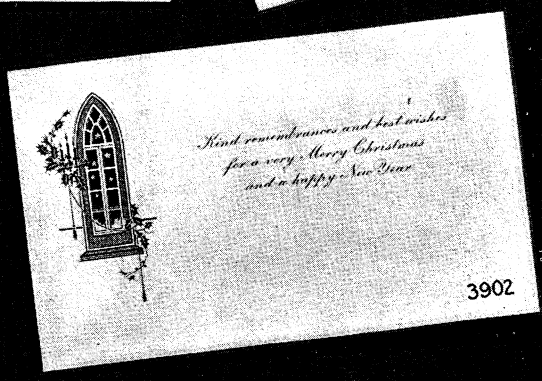 Kind remembrances and best wishes
for a very Merry Christmas
and a happy New Year
3902